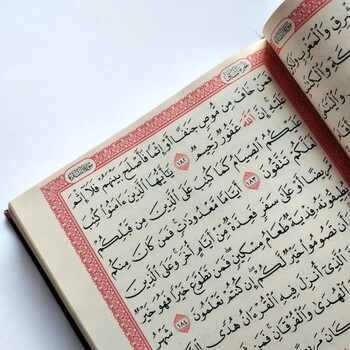 فَمَنْ خَافَ مِن مُّوصٍ جَنَفًا أَوْ إِثْمًا فَأَصْلَحَ بَيْنَهُمْ فَلَآ إِثْمَ
عَلَيْهِ إِنَّ ٱللَّهَ غَفُورٌ رَّحِيمٌ ١٨٢ يَٰٓأَيُّهَا ٱلَّذِينَ ءَامَنُوا۟ كُتِبَ
عَلَيْكُمُ ٱلصِّيَامُ كَمَا كُتِبَ عَلَى ٱلَّذِينَ مِن قَبْلِكُمْ
لَعَلَّكُمْ تَتَّقُونَ ١٨٣ أَيَّامًا مَّعْدُودَٰتٍ فَمَن كَانَ مِنكُم
أَوْ عَلَىٰ سَفَرٍ فَعِدَّةٌ مِّنْ أَيَّامٍ أُخَرَ وَعَلَى ٱلَّذِينَ
فِدْيَةٌ طَعَامُ مِسْكِينٍ فَمَن تَطَوَّعَ خَيْرًا فَهُوَ خَيْرٌ
أَن تَصُومُوا۟ خَيْرٌ لَّكُمْ إِن كُنتُمْ تَعْلَمُونَ ١٨٤ شَهْرُ
ٱلَّذِىٓ أُنزِلَ فِيهِ ٱلْقُرْءَانُ هُدًى
ٱلْهُدَىٰ وَٱلْفُرْقَانِ فَمَن
كَانَ مَرِيضًا
وَٱلْمَغْرِبِ